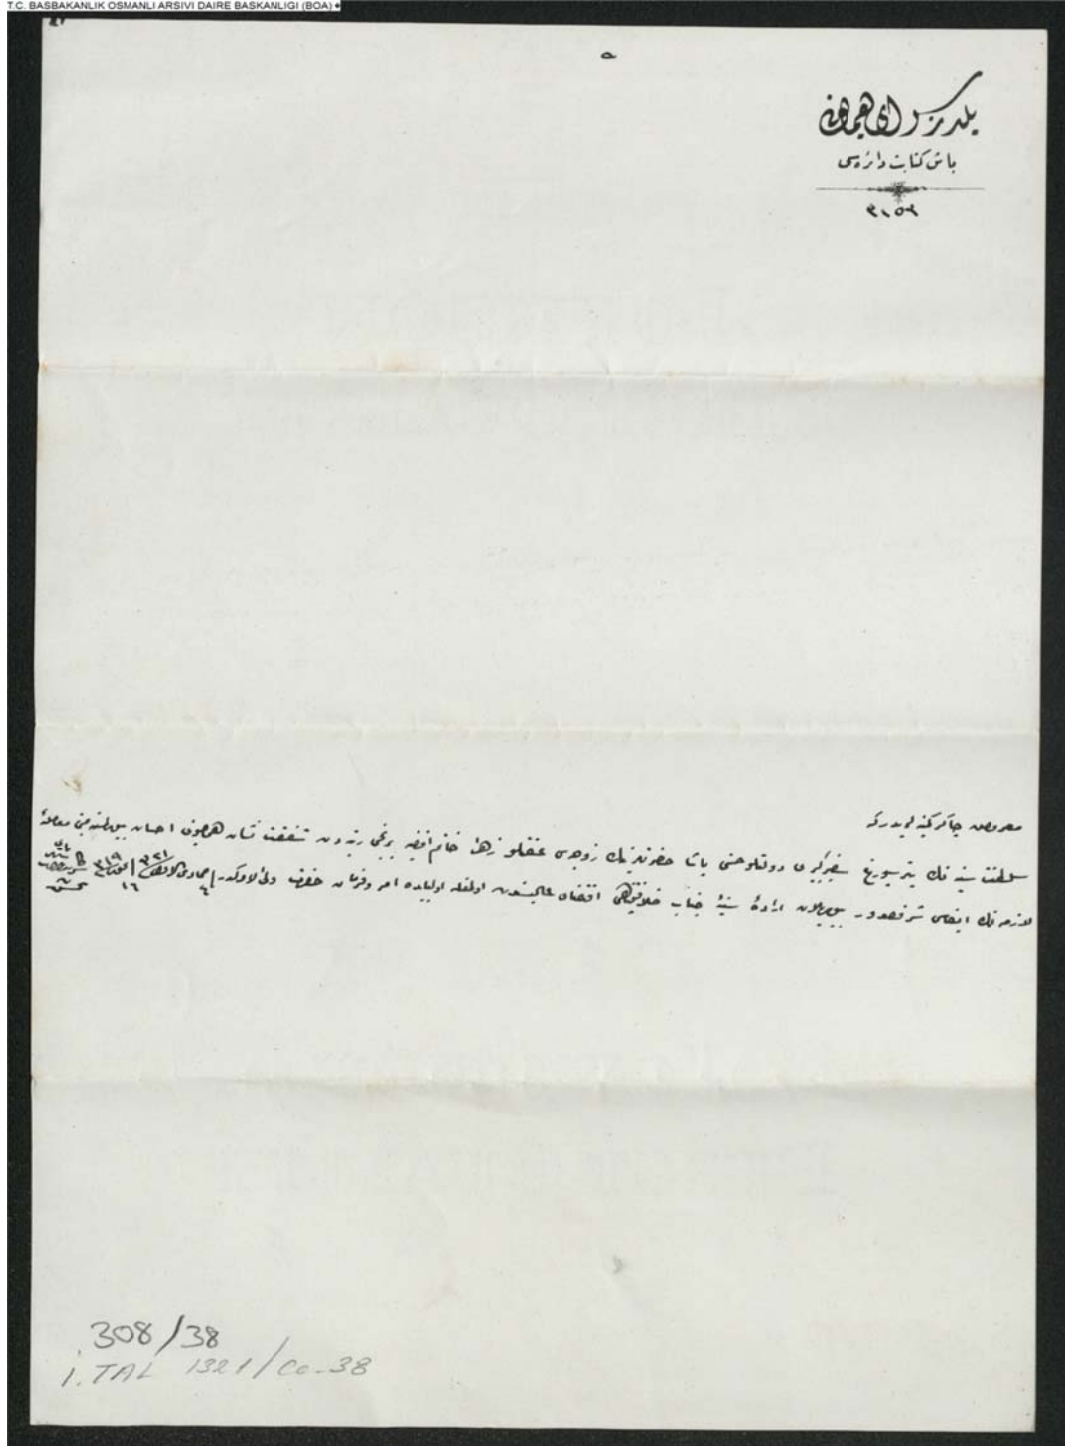 T.C. BASBAKANLIK OSMANLI ARSIVI DAIRE BASKANLIGI (BOA)
يلديز سراى همايونى
باش كتابت دائره سى
٣١٥٢
معروض چاكر كمينه لريدر كه
سلطنت سنيه نك پترسبورغ سفير كبيرى دولتلو حسنى پاشا حضرتلرينك زوجه سى عفتلو زهرا خانم افندى يه برنجى رتبه دن شفقت نشان همايونى احسان بيورلمش معامله
لازمه نك ايفاسى شرفصدور بيوريلان اراده سنيه جناب خلافتپناهى اقتضاى عاليسندن اولمغله اولبابده امر وفرمان حضرت ولى الامركدر
308/38
İ.TAL 1321/Ca-38